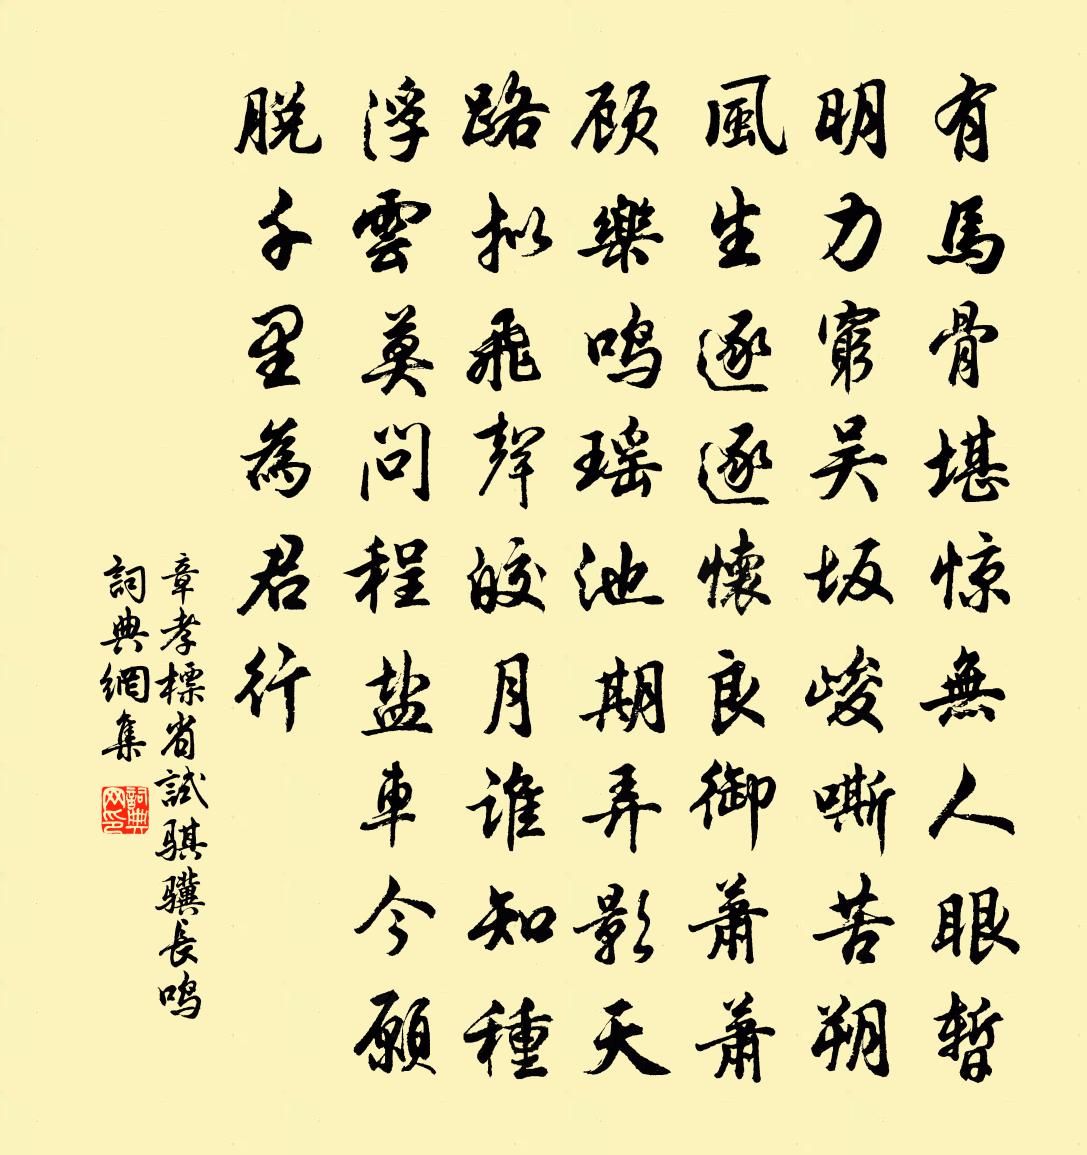 有馬骨堪惊無人眼暫
明力窮吴坂峻嘶苦朔
風生逐逐懷良御蕭蕭
顾樂鸣瑶池期弄影天
路拟飛聲皎月谁知種
浮雲莫问程盐車今願
脱千里為君行
章孝標省試骐骥長鸣
詞典網集
詞典网印